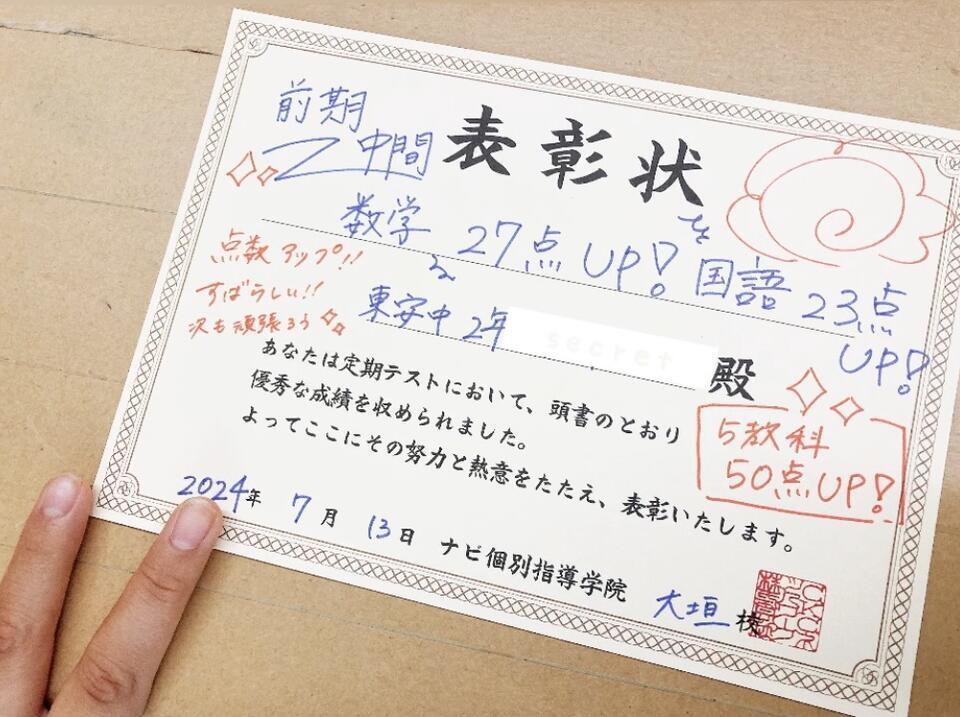 前期
中間
表彰状
数学 27点 UP! 国語 23点 UP!
点数アップ!!
すばらしい!!
次も頑張ろう
東安中 2年 secret 殿
あなたは定期テストにおいて、頭書のとおり
優秀な成績を収められました。
よってここにその努力と熱意をたたえ、表彰いたします。
5教科
50点UP!
2024年 7月 13日 ナビ個別指導学院 大垣 校